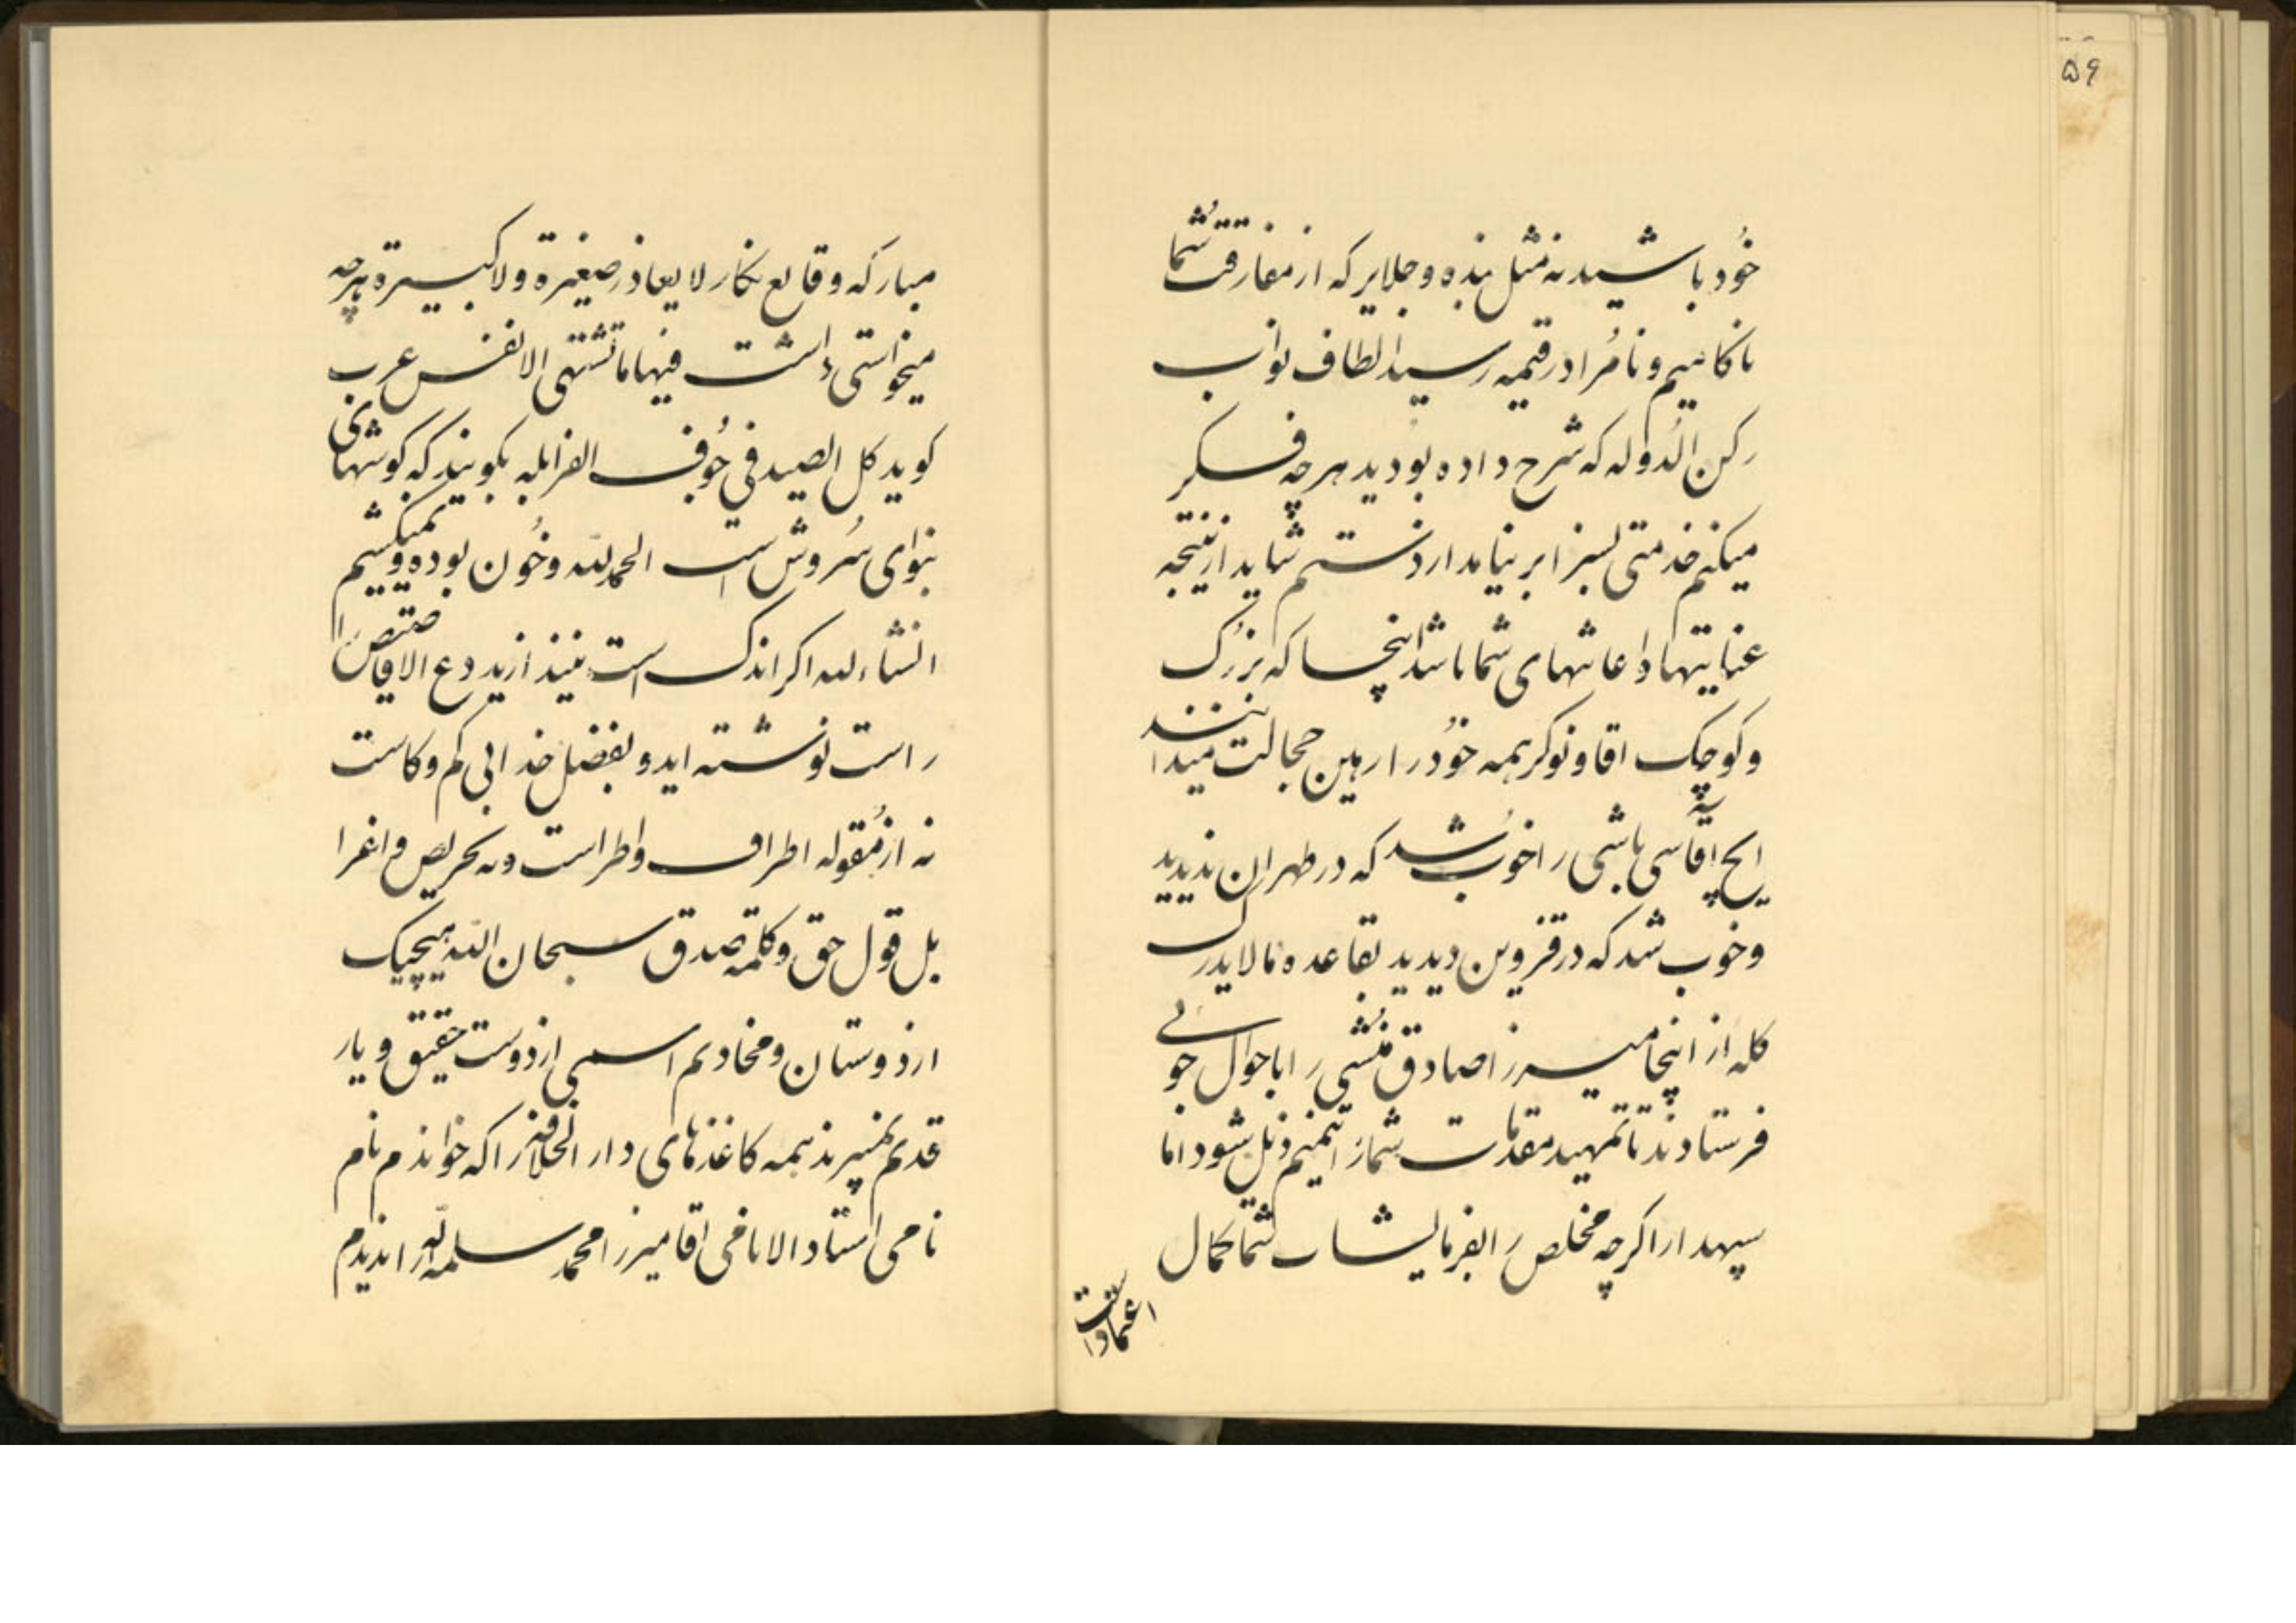 ۵۶
خود باشید نه مثل بنده و جلایر که از مفارقت شما
ناکامیم و نامراد رقیمه رسید الطاف نواب
رکن الدوله که شرح داده بودید هر چه فکر
میکنم خدمتی بسزا بر نیامد از دستم شاید از نتیجه
عنایتها و دعاهای شما باشد اینجا که بزرگ
و کوچک اقا و نوکر همه خود را رهین خجالت میدانند
ایچ آقاسی باشی را خوب شد که در طهران ندیدید
و خوب شد که در قزوین دیدید بقاعده ما لا یدرک
کله از اینجا میرزا صادق منشی را با جوال جوالی
فرستادند تا تمهید مقدمات شما را شود اما
سپهدار اگر چه مخلص را بفرمایشات شما کمال
اعتماد است
مبارکه وقایع نگار لا یغادر صغیرة و لا کبیرة هر چه
میخواستی داشت فیها ما تشتهی الانفس عرب
کوید کل الصید فی جوف الفرا بله بکویند که کوشهای
بنوای سروش است الحمد لله و خون بوده و نمیکشیم
انشاء لله اکر اندک است نیندازید دع الاقاصیص را
راست نوشته اید و بفضل خدا بی کم و کاست
نه از مقوله اطراف و اطراست و نه تحریص و اغرا
بل قول حق و کلمه صدق سبحان الله هیچیک
از دوستان و مخادیم اسمی از دوست حقیقی و یار
قدیم نمیبرند همه کاغذهای دار الخلافه را که خواندم نام
نامی استاد الانامی اقا میرزا محمد سلمه الله را ندیدم